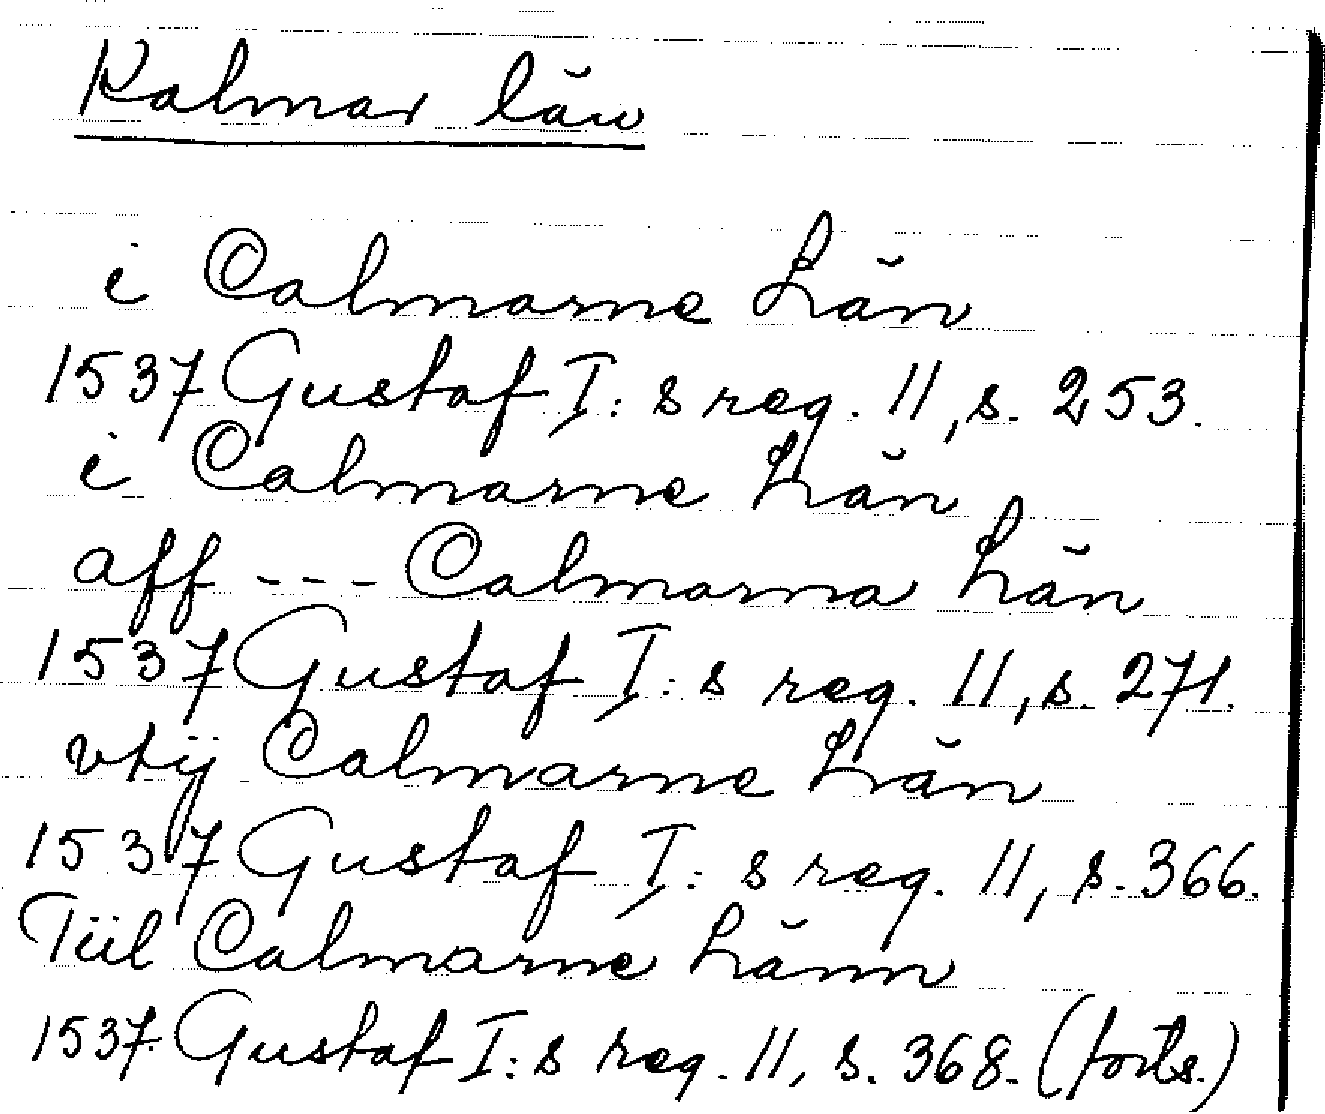 Kalmar län
i Calmarne Län
1537 Gustaf I:s reg. 11, s. 253.
i Calmarne Län
aff --- Calmarna Län
1537 Gustaf I:s reg. 11, s. 271.
vtij Calmarne Län
1537 Gustaf I:s reg. 11, s. 366.
Tiil Calmarne Länn
1537 Gustaf I:s reg. 11, s. 368. (forts.)